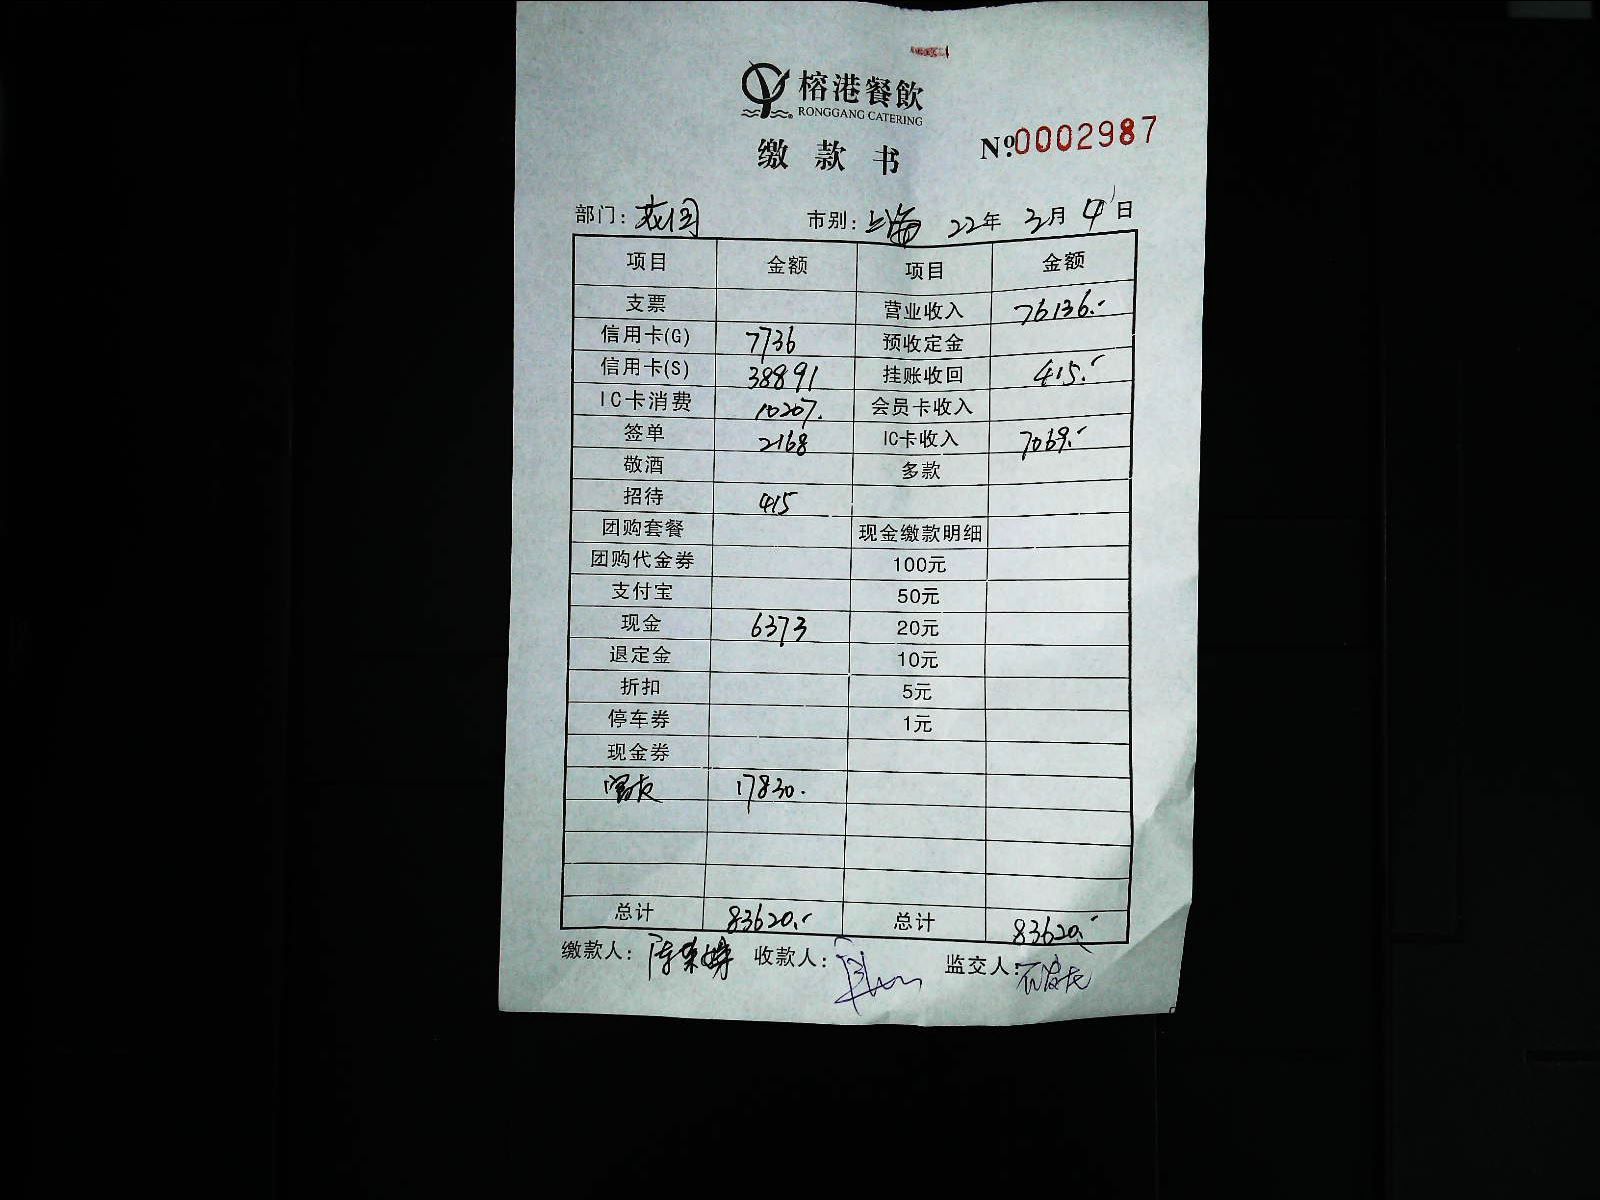 榕港餐飲
RONGGANG CATERING
缴款书 №0002987
部门: 花园 市别: 上海 22年 3月 4日
项目 金额 项目 金额
支票 营业收入 76136.-
信用卡(G) 7736 预收定金
信用卡(S) 38891 挂账收回 415.-
IC卡消费 10207. 会员卡收入
签单 2168 IC卡收入 7069.-
敬酒 多款
招待 415
团购套餐 现金缴款明细
团购代金券 100元
支付宝 50元
现金 6373 20元
退定金 10元
折扣 5元
停车券 1元
现金券
17830.
总计 83620.- 总计 83620.-
缴款人: 收款人: 监交人: